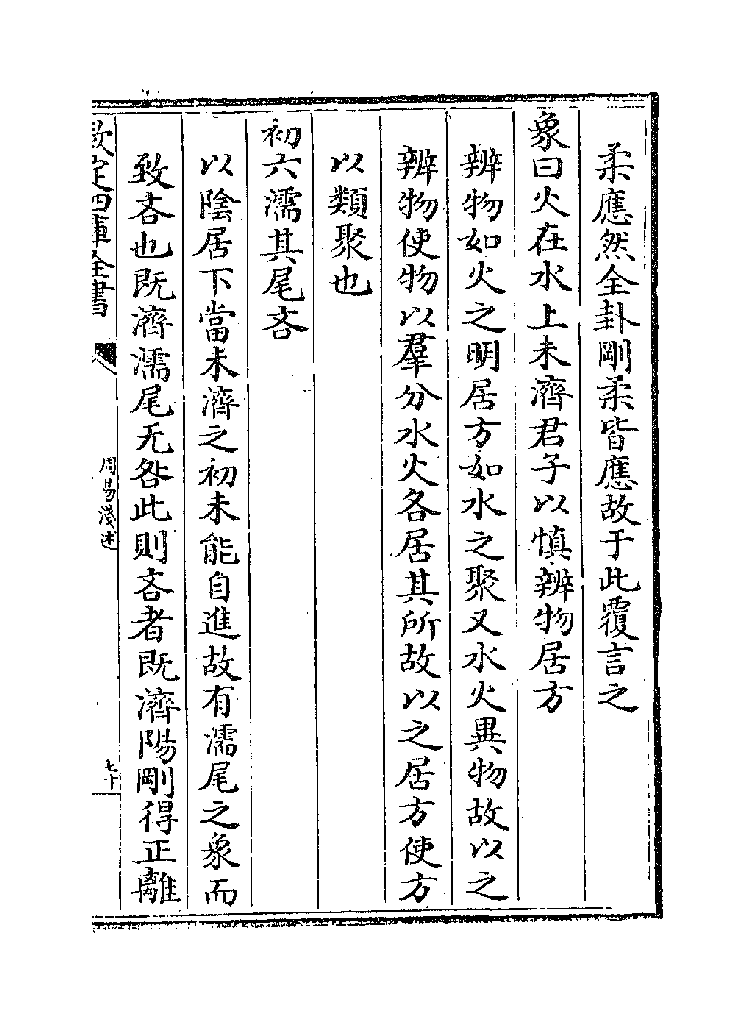 柔應然全卦剛柔皆應故于此覆言之
象曰火在水上未濟君子以慎辨物居方
辨物如火之明居方如水之聚又水火異物故以之
辨物使物以羣分水火各居其所故以之居方使方
以類聚也
初六濡其尾吝
以陰居下當未濟之初未能自進故有濡尾之象而
致吝也既濟濡尾无咎此則吝者既濟陽剛得正離
欽定四庫全書
周易淺述
七十